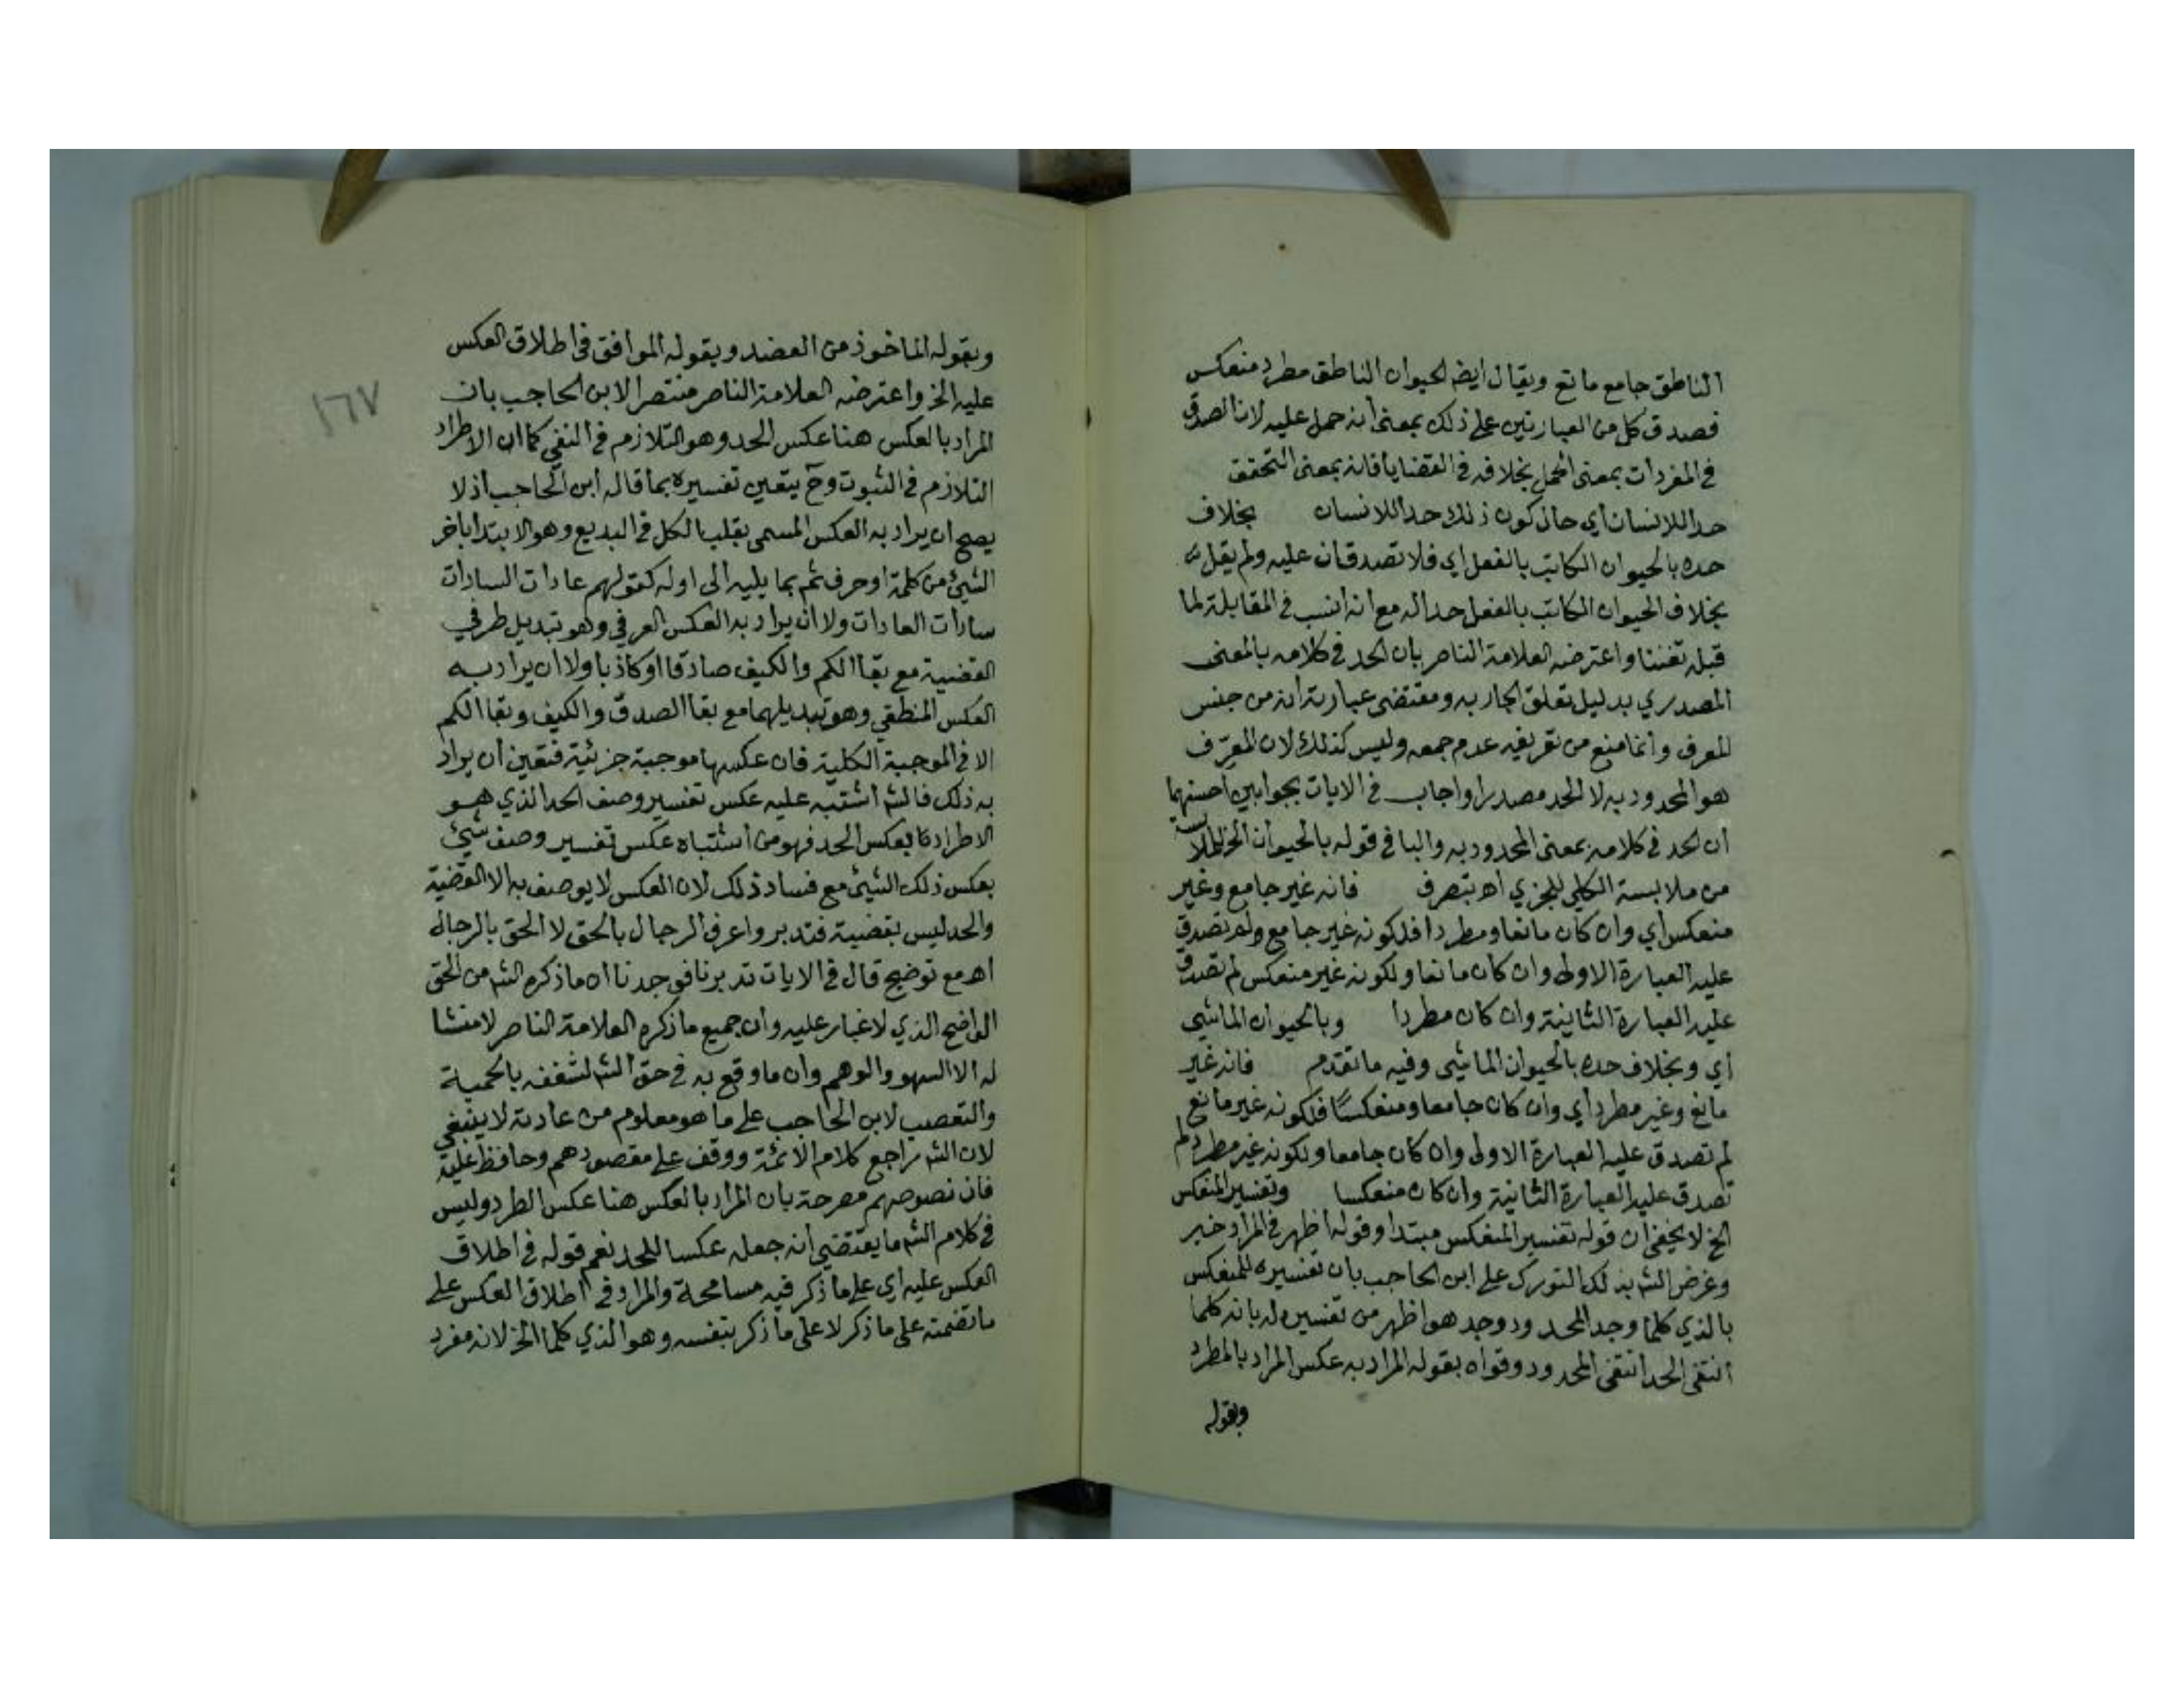 الناطق جامع مانع ويقال ايضه الحيوان الناطق مطرد منعكس
فصدق كل من العبارتين على ذلك بمعنى انه حمل عليه لان الصدق
في المفردات بمعنى الحمل بخلافه في القضايا فانه بمعنى التحقق
حدا للانسان اي حال كون ذلك حدا للانسان بخلاف
حده بالحيوان الكاتب بالفعل اي فلا تصدقان عليه ولم يقل
بخلاف الحيوان الكاتب بالفعل حدا له مع انه انسب في المقابلة لما
قبله تفننا واعترضه العلامة الناصر بان الحد في كلامه بالمعنى
المصدري بدليل تعلق الجار به ومقتضى عبارته انه من جنس
المعرف وانما منع من تعريفه عدم جمعه وليس كذلك لان المعرّف
هو المحدود به لا الحد مصدرا واجاب في الايات بجوابين احسنهما
ان الحد في كلامه بمعنى المحدود به والبا في قوله بالحيوان الخ للملابسة
من ملابسة الكلي للجزي اه بتصرف فانه غير جامع وغير
منعكس اي وان كان مانعا ومطردا فلكونه غير جامع ولم تصدق
عليه العبارة الاولى وان كان مانعا ولكونه غير منعكس لم تصدق
عليه العبارة الثانية وان كان مطردا وبالحيوان الماشي
اي وبخلاف حده بالحيوان الماشي وفيه ما تقدم فانه غير
مانع وغير مطرد اي وان كان جامعا ومنعكسًا فلكونه غير مانع
لم تصدق عليه العبارة الاولى وان كان جامعا ولكونه غير مطرد لم
تصدق عليه العبارة الثانية وان كان منعكسا وتفسير المنعكس
الخ لا يخفى ان قوله تفسير المنعكس مبتدا وقوله اظهر في المراد خبر
وغرض الشه بذلك التورك على ابن الحاجب بان تفسيره للمنعكس
بالذي كلما وجد المحدود وجد هو اظهر من تفسيره له بانه كلما
انتفى الحد انتفى المحدود وقواه بقوله المراد به عكس المراد بالمطرد
وبقوله
وبقوله الماخوذ من العضد وبقوله الموافق في اطلاق العكس
عليه الخ واعترضه العلامة الناصر منتصرا لابن الحاجب بان
المراد بالعكس هنا عكس الحد وهو التلازم في النفي كما ان الاطراد
التلازم في الثبوت وح يتعين تفسيره بما قاله ابن الحاجب اذ لا
يصح ان يراد به العكس المسمى بقلب الكل في البديع وهو الابتدا باخر
الشيئ من كلمة او حرف ثم بما يليه الى اوله كقولهم عادات السادات
سادات العادات ولا ان يراد به العكس العرفي وهو تبديل طرفي
القضية مع بقا الكم والكيف صادقا او كاذبا ولا ان يراد به
العكس المنطقي وهو تبديلهما مع بقا الصدق والكيف وبقا الكم
الا في الموجبة الكلية فان عكسها موجبة جزئية فتعين ان يراد
به ذلك فالشه اشتبه عليه عكس تفسير وصف الحد الذي هو
الاطراد بعكس الحد فهو من اشتباه عكس تفسير وصف شيئ
بعكس ذلك الشيئ مع فساد ذلك لان العكس لا يوصف به الا القضية
والحد ليس بقضية فتدبر واعرف الرجال بالحق لا الحق بالرجال
اه مع توضيح قال في الايات تدبرنا فوجدنا ان ما ذكره الشه من الحق
الواضح الذي لا غبار عليه وان جميع ما ذكره العلامة الناصر لا منشا
له الا السهو والوهم وان ما وقع به في حق الشه لشغفه بالحمية
والتعصب لابن الحاجب على ما هو معلوم من عادته لا ينبغي
لان الشه راجع كلام الائمة ووقف على مقصودهم وحافظ عليه
فان نصوصهم مصرحة بان المراد بالعكس هنا عكس الطرد وليس
في كلام الشه ما يقتضي انه جعله عكسا للحد نعم قوله في اطلاق
العكس عليه اي على ما ذكر فيه مسامحة والمراد في اطلاق العكس على
ما تضمنه على ما ذكر لا على ما ذكر بنفسه وهو الذي كلما الخ لانه مفرد
١٦٧